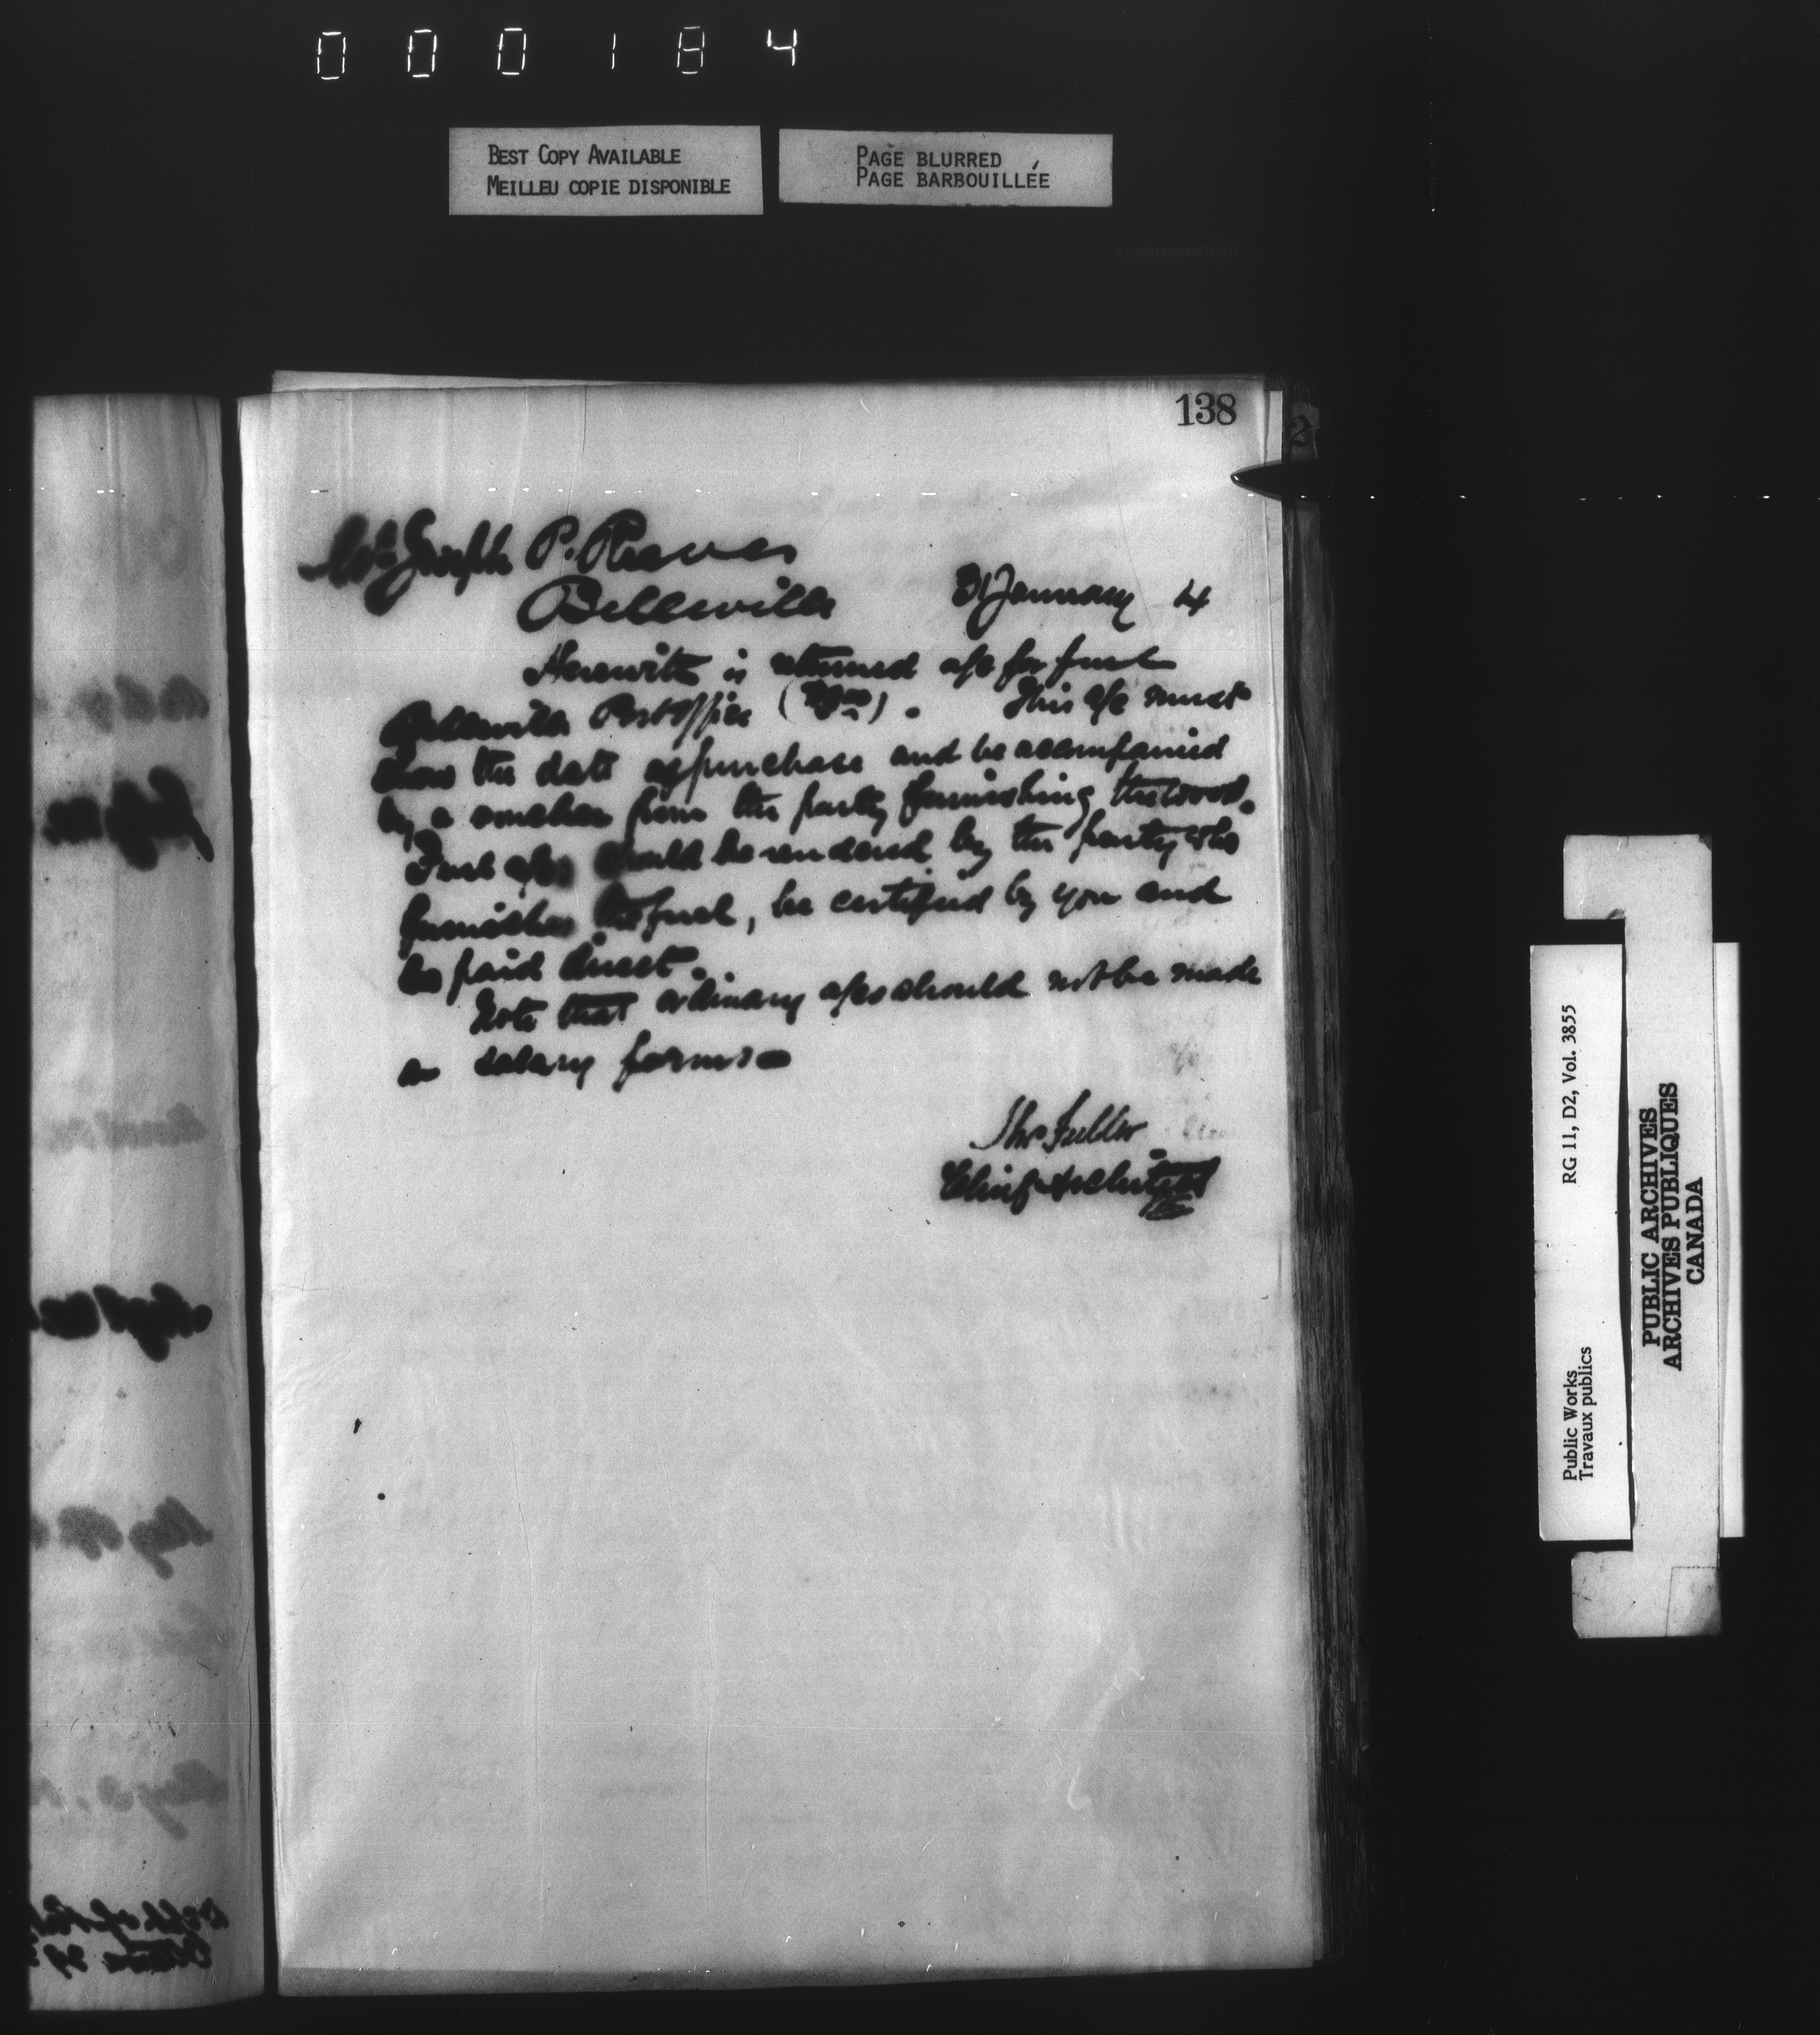 000184
BEST COPY AVAILABLE
MEILLEU COPIE DISPONIBLE
PAGE BLURRED
PAGE BARBOUILLÉE
138
2
Mr Joseph P. Reeves
Belleville
31 January 4
Herewith is returned a/c for fuel
Belleville Post Office ( ). This a/c must
show the date of purchase and be accompanied
by a voucher from the party furnishing the wood.
Fuel a/cs should be rendered by the party who
furnishes the fuel, be certified by you and
be paid direct.
Note that ordinary a/cs should not be made
on salary forms
Thos Fuller
Chief Architect
RG 11, D2, Vol. 3855
Public Works
Travaux publics
PUBLIC ARCHIVES
ARCHIVES PUBLIQUES
CANADA